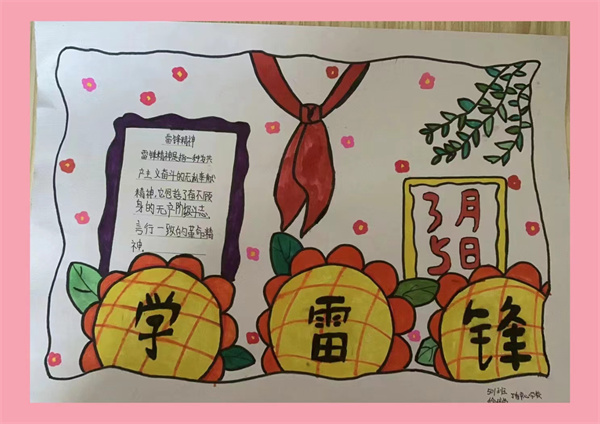 雷锋精神
雷锋精神是指一种为共
产主义奋斗的无私奉献
精神,它包括了奋不顾
身的无产阶级斗志,
言行一致的革命精
神.
3月
5日
学雷锋